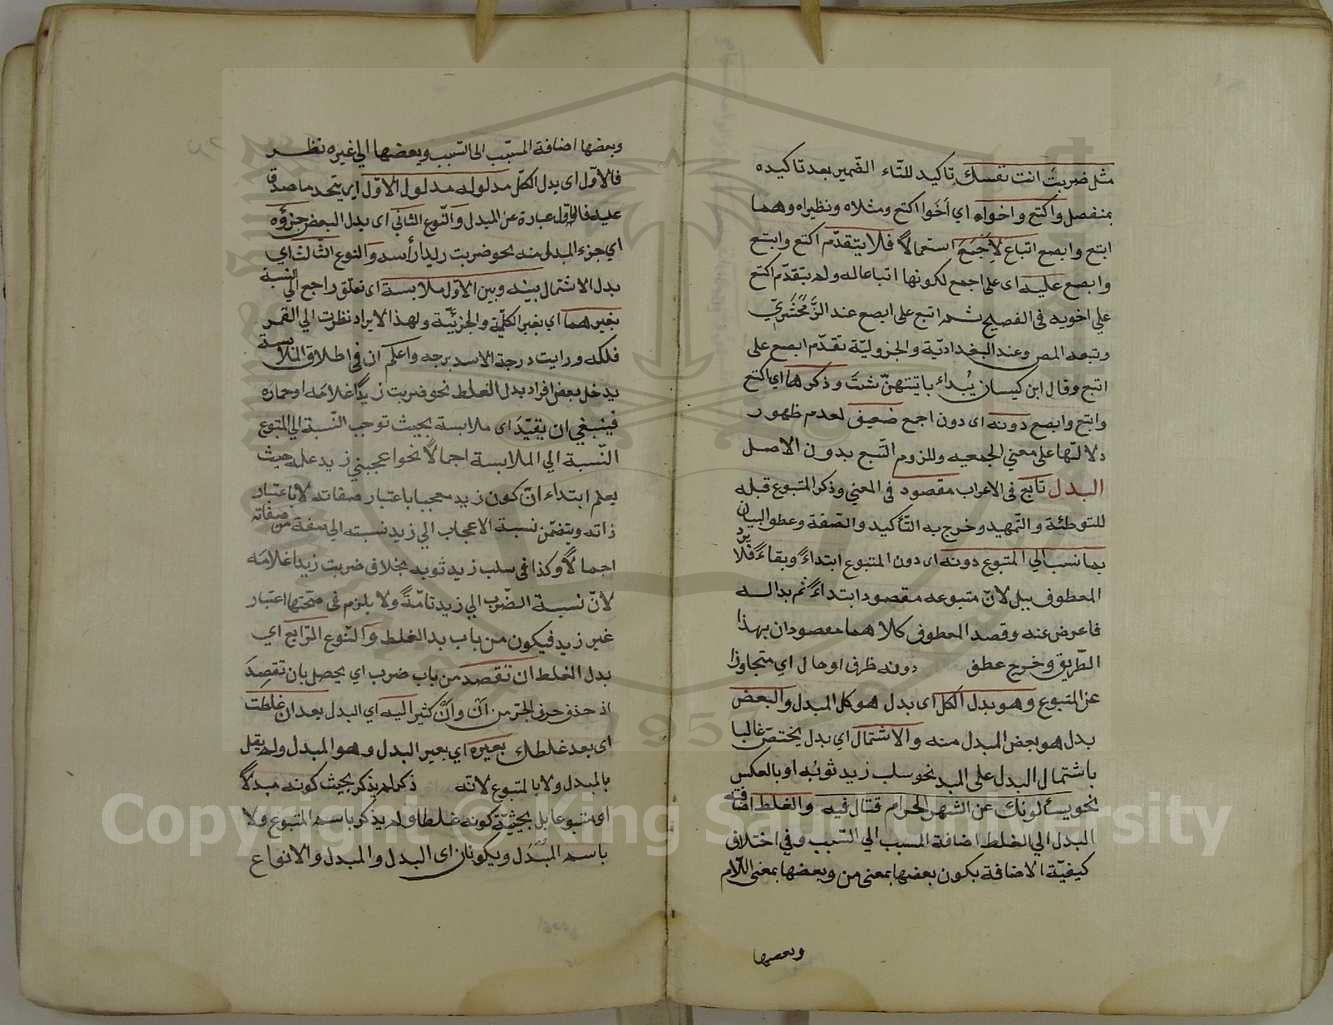 مثل ضربت انت نفسك تاكيد للتاء الضمير بعد تاكيده
بمنفصل واكتع واخواه اي أخوا اكتع ومثلاه ونظيراه وهما
ابتع وابصع اتباع لاجمع استعمالاً فلا يتقدم اكتع وابتع
وابصع عليه اى على اجمع لكونها اتباعا له ولم يتقدم اكتع
علي اخويه في الفصيح ثم اتبع على ابصع عند الزمخشري
وتبعه المص وعند البغدادية والجزولية تقدم ابصع على
ابتع وقال ابن كيسان يبداء بايتهن شئت وذكرها اى اكتع
وابتع وابصع دونه اى دون اجمع ضعيف لعدم ظهور
دلالتها على معنى الجمعيه وللزوم التبع بدون الاصل
البدل تابع في الاعراب مقصود في المعني وذكر المتبوع قبله
للتوطئة والتمهيد وخرج به التأكيد والصفة وعطف البيان
بما نسب الي المتبوع دونه اى دون المتبوع ابتداءً وبقاءً فلا يرد
المعطوف ببل لانّ متبوعه مقصود ابتداءً ثم بدا له
فاعرض عنه وقصد المعطوف فكلاهما مقصودان بهذا
الطريق وخرج عطف دونه ظرف او حال اي متجاوزا
عن المتبوع وهو بدل الكل اى بدل هو كل المبدل والبعض
بدل هو بعض المبدل منه والاشتمال اي بدل يختص غالبا
باشتمال البدل على المبدل نحو سلب زيد ثوبه او بالعكس
نحو يسألونك عن الشهر الحرام قتال فيه والغلط اضافة
البدل الي الغلط اضافة المسبب الي السبب وفي اختلاف
كيفية الاضافة يكون بعضها بمعنى من وبعضها بمعنى اللام
وبعضها
وبعضها اضافة المسبب الى السبب وبعضها الي غيره نظر
فالاول اى بدل الكل مدلوله مدلول الاول اى يتحد ما صدق
عليه فالاول عبارة عن المبدل والنوع الثاني اى بدل البعض جزؤه
اي جزء المبدل منه نحو ضربت زيدا رأسه والنوع الثالث اي
بدل الاشتمال بينه وبين الاول ملابسة اى تعلق راجع الي النسبة
بغيرهما اي بغير الكلية والجزئية ولهذا الايراد نظرت الي القمر
فلكه ورايت درجة الاسد برجه واعلم ان في اطلاق الملابسة
يدخل بعض افراد بدل الغلط نحو ضربت زيدًا غلامه او حماره
فينبغي ان يقيّد اى ملابسة بحيث توجب النسبة الي المتبوع
النسبة الي الملابسة اجمالاً نحو اعجبني زيد علمه حيث
يعلم ابتداء انّ كون زيد معجبا باعتبار صفاته لا باعتبار
ذاته وتضمن نسبة الاعجاب الي زيد نسبته الي صفة من صفاته
اجمالاً وكذا في سلب زيد ثوبه بخلاف ضربت زيدا غلامه
لانّ نسبة الضرب الي زيد تامّة ولا يلزم في صحتها اعتبار
غير زيد فيكون من باب بدل الغلط والنوع الرابع اي
بدل الغلط ان تقصد من باب ضرب اي يحصل بان تقصد
اذ حذف حرف الجر من انّ وأن كثير اليه اي البدل بعد ان غلطت
اى بعد غلطك بغيره اي بغير البدل وهو المبدل ولم يقل
بالمبدل ولا بالمتبوع لانه ذكر لم يذكر بحيث كونه مبدلاً
اى متبوعا بل بحيثية كونه غلطا ولم يذكر باسم المتبوع ولا
باسم المُبْدَل ويكونان اى البدل والمبدل والانواع
Copyright © King Saud University
1957